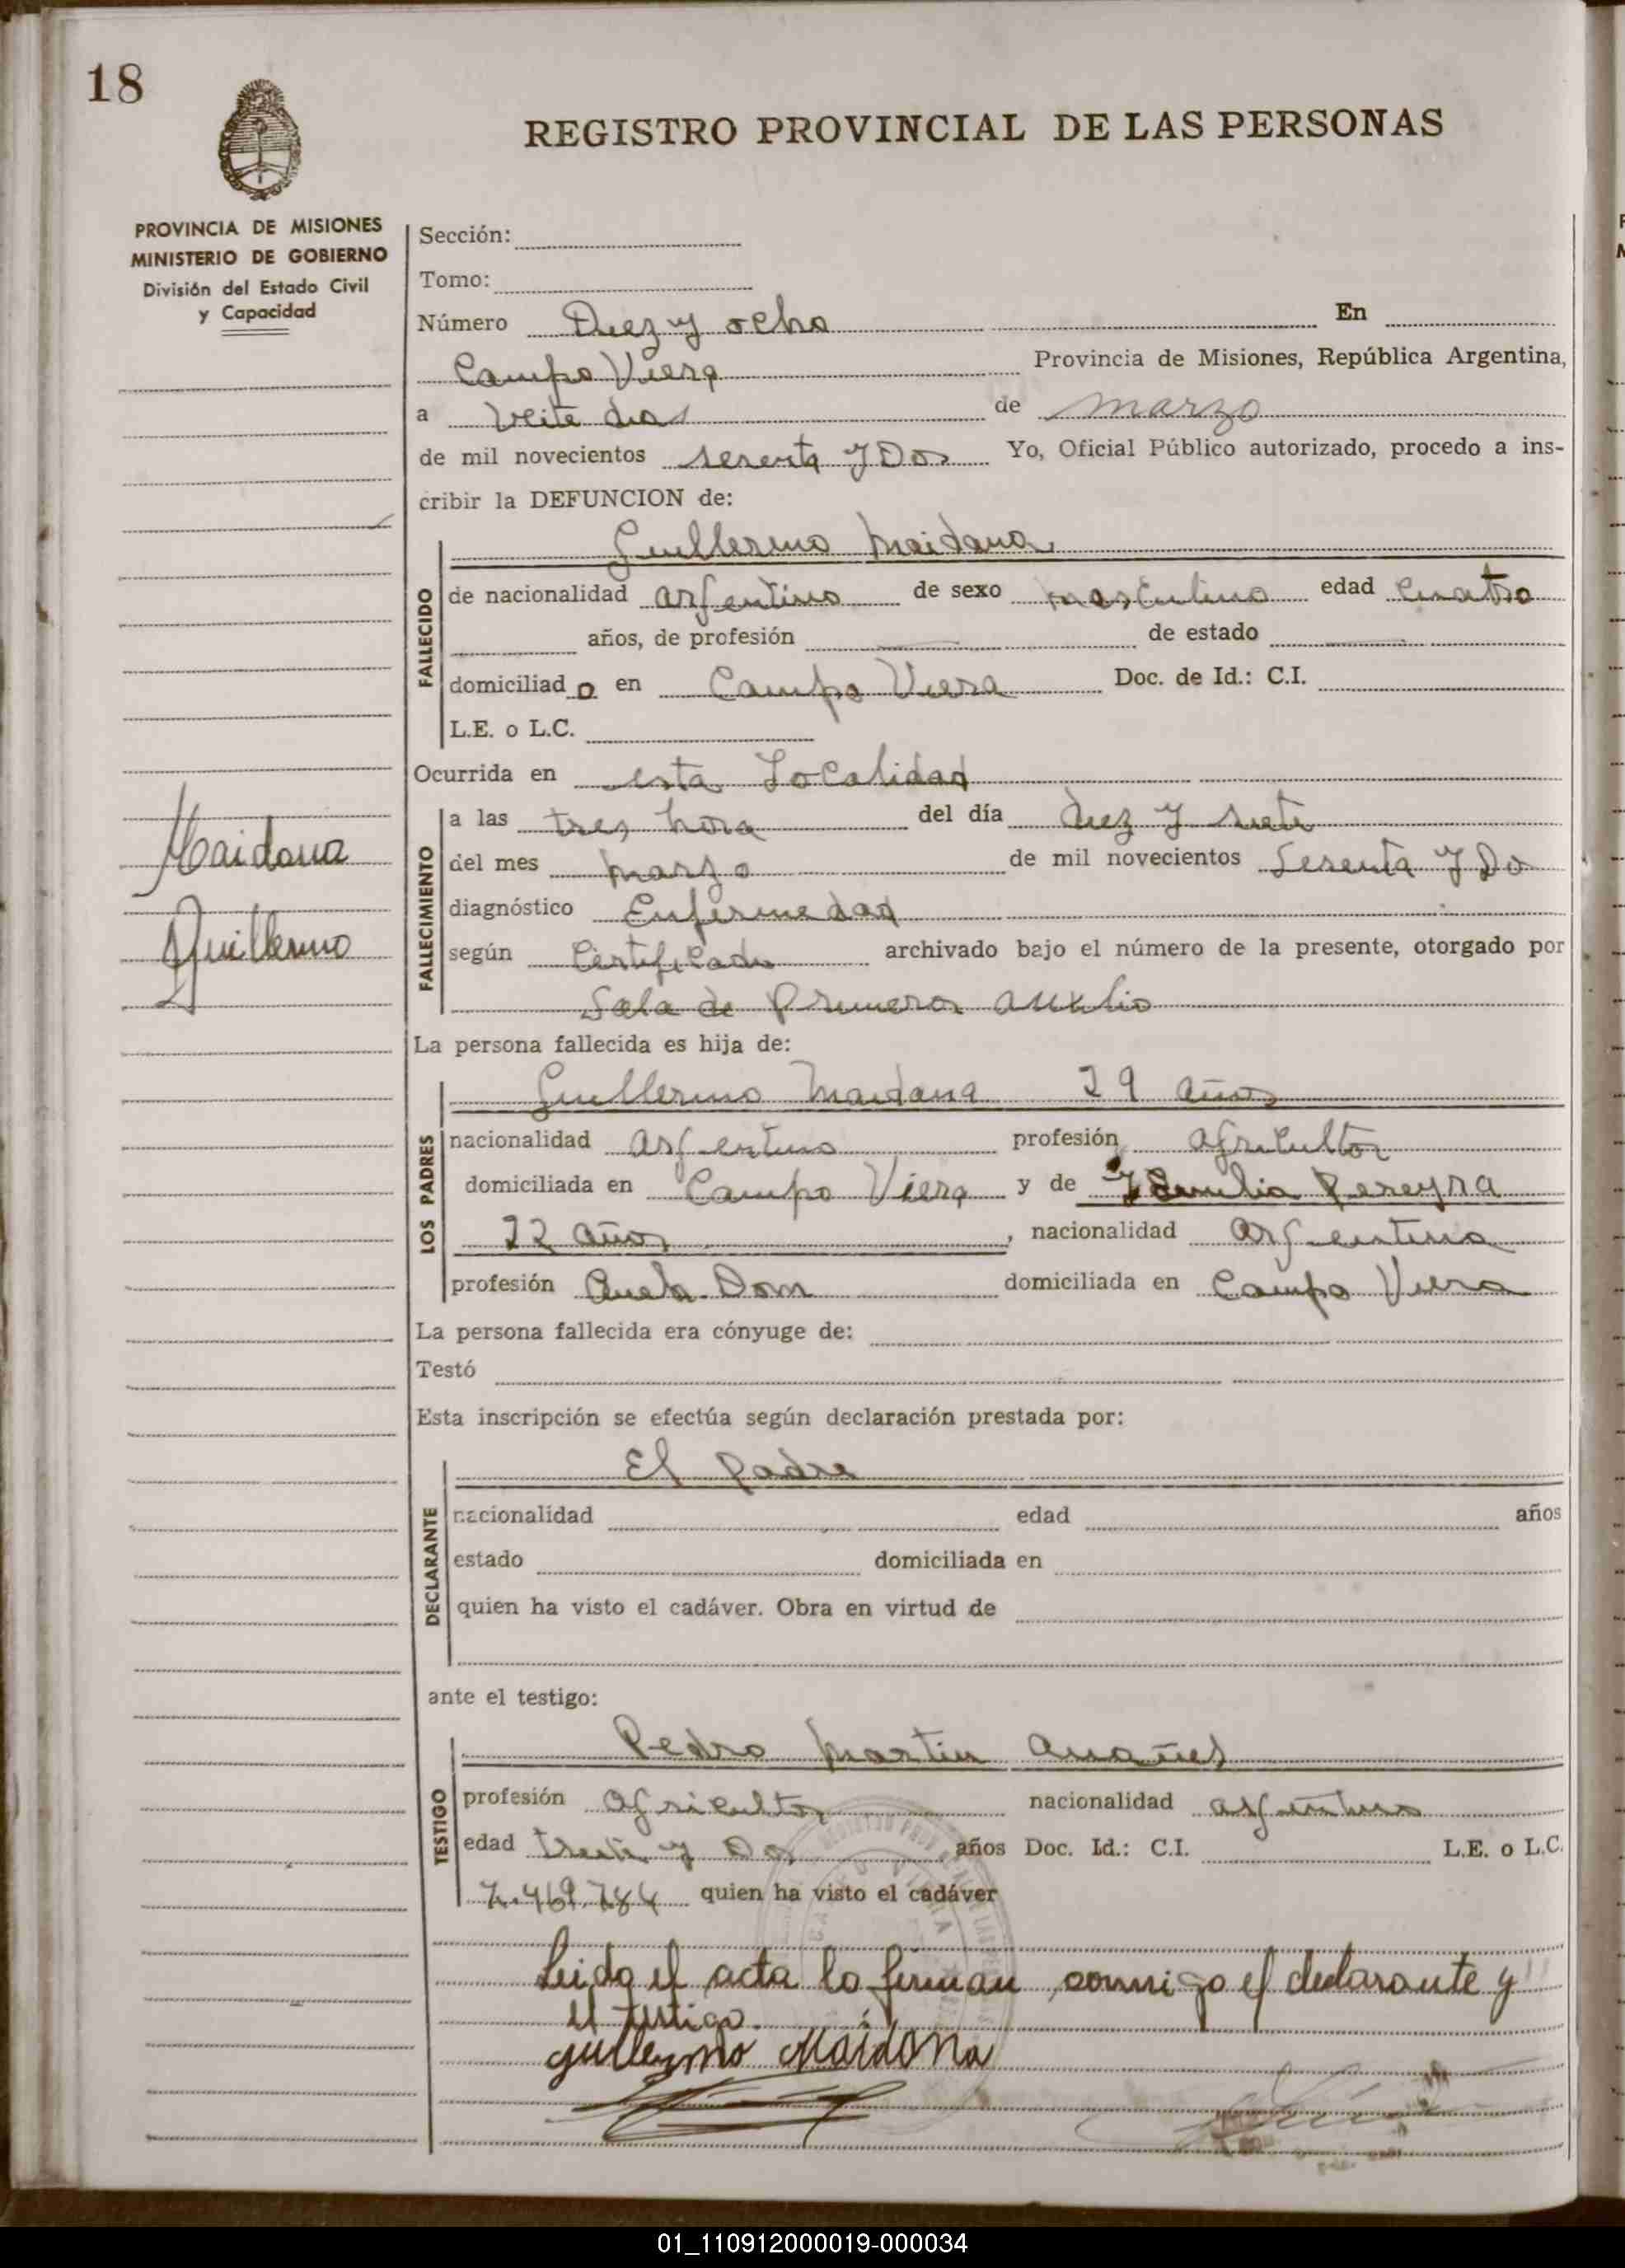 18
REGISTRO PROVINCIAL DE LAS PERSONAS
PROVINCIA DE MISIONES
MINISTERIO DE GOBIERNO
División del Estado Civil
y Capacidad
Sección:
Tomo:
Número Diez y ocho En
Campo Viera Provincia de Misiones, República Argentina,
a Veite dias de marzo
de mil novecientos sesenta y Dos Yo, Oficial Público autorizado, procedo a ins-
cribir la DEFUNCION de:
Guillermo Maidana
FALLECIDO
de nacionalidad argentino de sexo masculino edad cuatro
años, de profesión de estado
domiciliado en Campo Viera Doc. de Id.: C.I.
L.E. o L.C.
Ocurrida en esta Localidad
Maidana
Guillermo
FALLECIMIENTO
a las tres hora del día diez y siete
del mes marzo de mil novecientos Sesenta y Do
diagnóstico Enfermedad
según Certificado archivado bajo el número de la presente, otorgado por
Sala de Primeros Auxilio
La persona fallecida es hija de:
LOS PADRES
Guillermo Maidana 29 años
nacionalidad argentino profesión agricultor
domiciliada en Campo Viera y de Emilia Pereyra
22 años, nacionalidad argentina
profesión Dom domiciliada en Campo Viera
La persona fallecida era cónyuge de:
Testó
Esta inscripción se efectúa según declaración prestada por:
DECLARANTE
El padre
nacionalidad edad años
estado domiciliada en
quien ha visto el cadáver. Obra en virtud de
ante el testigo:
TESTIGO
Pedro Martin
profesión agricultor nacionalidad argentino
edad treita y Dos años Doc. Id.: C.I. L.E. o L.C.
7.469.784 quien ha visto el cadáver
Leido el acta lo firman conmigo el declarante y
el testigo.
guillermo Maidana
01_110912000019-000034